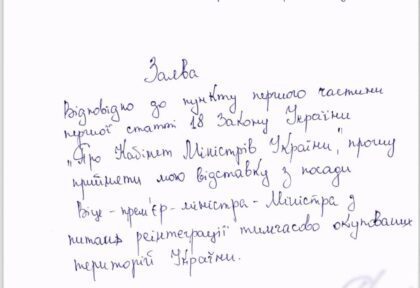 Заява
Відповідно до пункту першого частини
першої статті 18 Закону України
„Про Кабінет Міністрів України", прошу
прийняти мою відставку з посади
Віце-прем'єр-міністра - Міністра з
питань реінтеграції тимчасово окупованих
територій України.